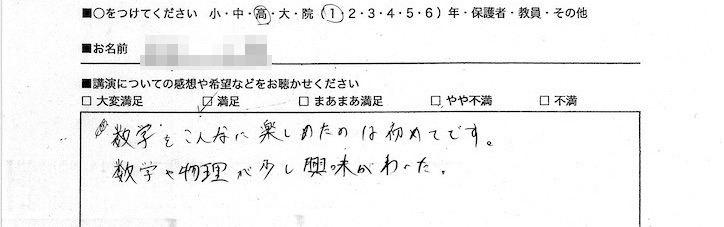 ■○をつけてください 小・中・高・大・院(1・2・3・4・5・6)年・保護者・教員・その他
■お名前
■講演についての感想や希望などをお聴かせください
□ 大変満足 □ 満足 □ まあまあ満足 □ やや不満 □ 不満
数学をこんなに楽しめたのは初めてです。
数学や物理が少し興味がわいた。